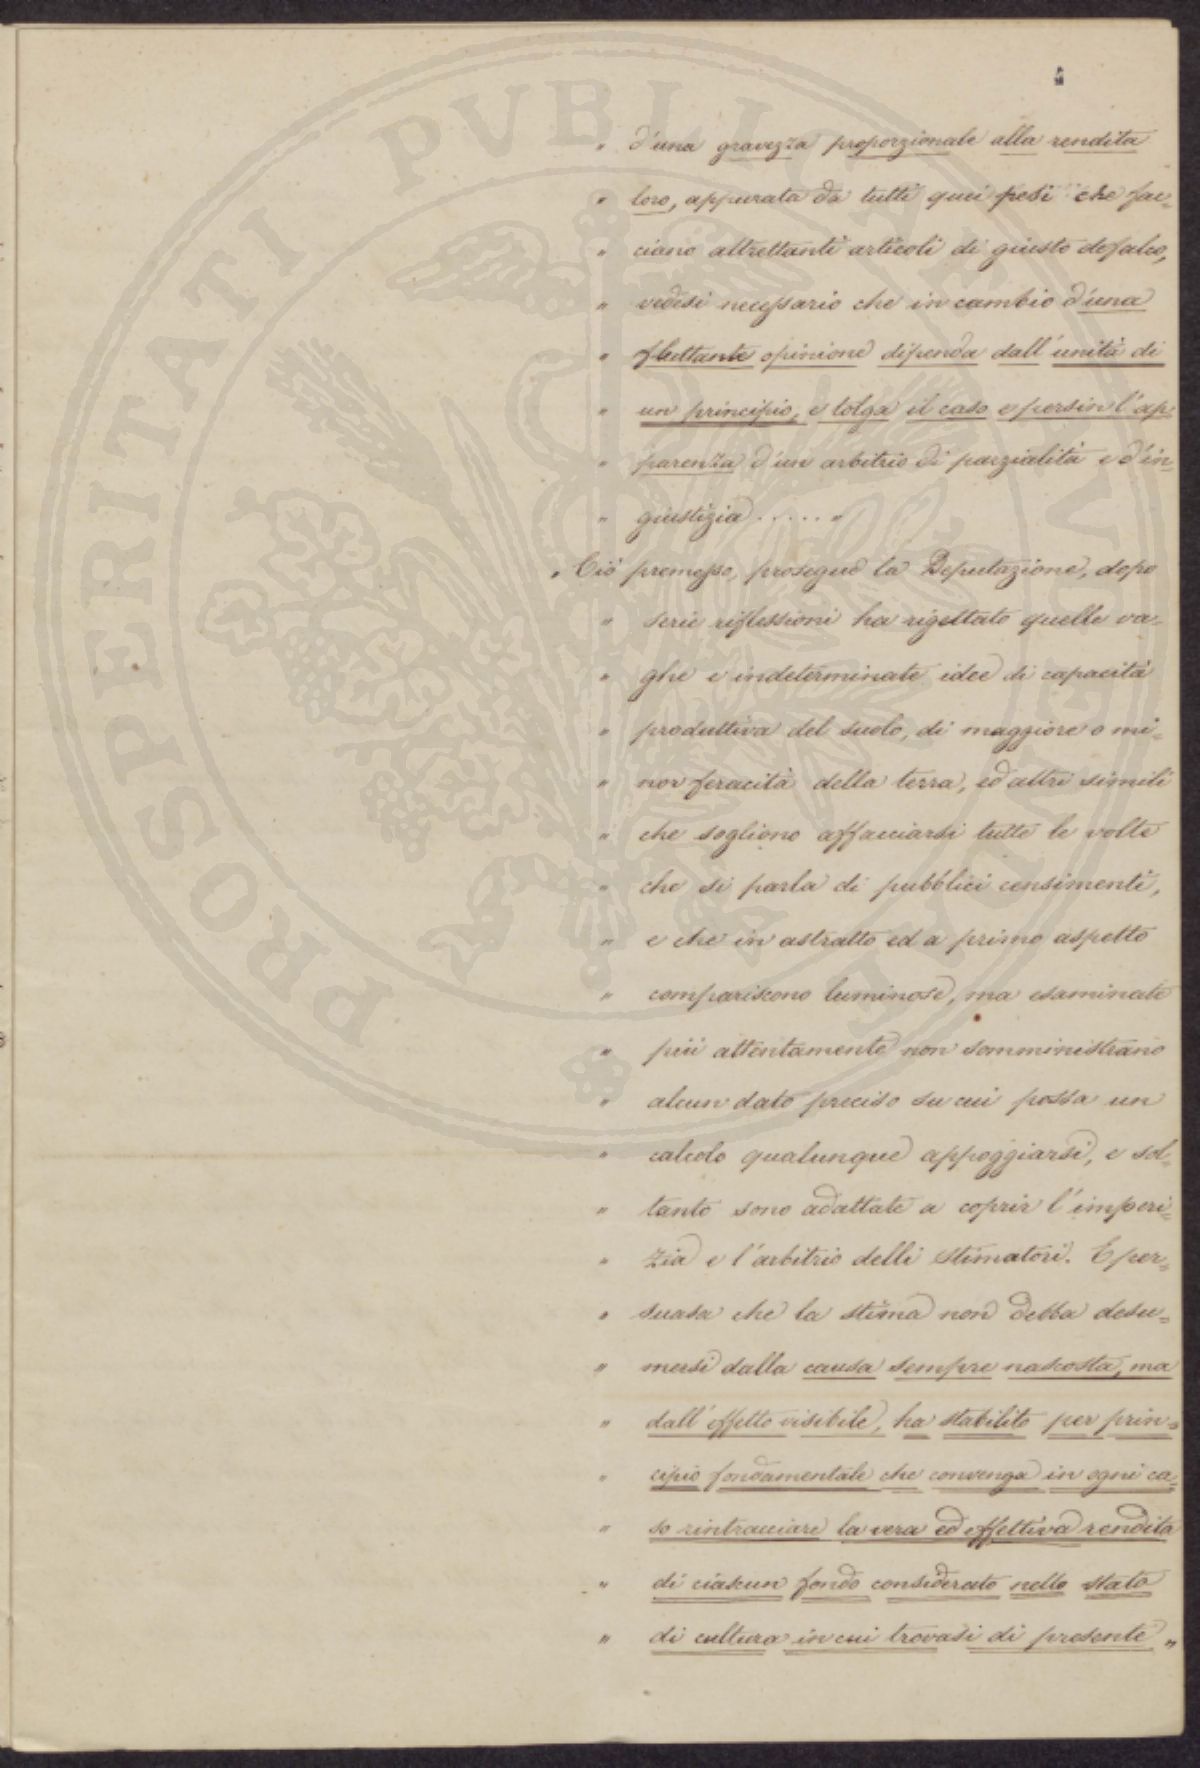 PROSPERITATI PVBLICAE
" d'una gravezza proporzionale alla rendita
" loro, appurata da tutti quei pesi che fac-
" ciano altrettanti articoli di giusto defalco,
" vedesi necessario che in cambio d'una
" fluttante opinione dipenda dall'unità di
" un principio, e tolga il caso e persin l'ap-
" parenza d'un arbitrio di parzialità e d'in-
" giustizia ..... "
" Ciò premesso, prosegue la Deputazione, dopo
" serie riflessioni ha rigettato quelle va-
" ghe e indeterminate idee di capacità
" produttiva del suolo, di maggiore o mi-
" nor feracità della terra, ed altri simili
" che sogliono affacciarsi tutte le volte
" che si parla di pubblici censimenti,
" e che in astratto ed a primo aspetto
" compariscono luminose, ma esaminate
" più attentamente non somministrano
" alcun dato preciso su cui possa un
" calcolo qualunque appoggiarsi, e sol-
" tanto sono adattate a coprir l'imperi-
" zia e l'arbitrio delli stimatori. E per-
" suasa che la stima non debba desu-
" mersi dalla causa sempre nascosta, ma
" dall'effetto visibile, ha stabilito per prin-
" cipio fondamentale che convenga in ogni ca-
" so rintracciare la vera ed effettiva rendita
" di ciascun fondo considerato nello stato
" di cultura in cui trovasi di presente "